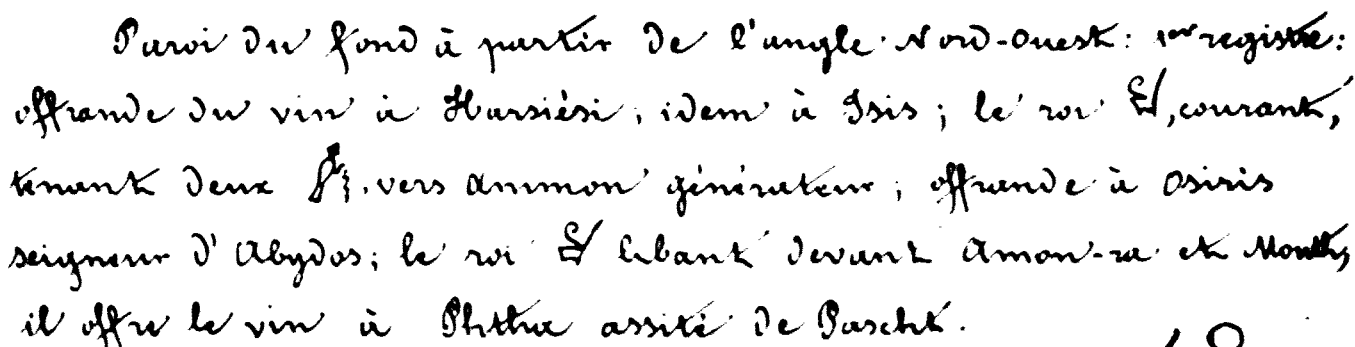 Paroi du fond à partir de l'angle Nord-Ouest: 1er registre:
offrande du vin à Harsiési; idem à Isis; le roi, courant,
tenant deux, vers Ammon générateur; offrande à Osiris
seigneur d'Abydos; le roi libant devant Amon-ra et Month,
il offre le vin à Phtha assité de Pascht.